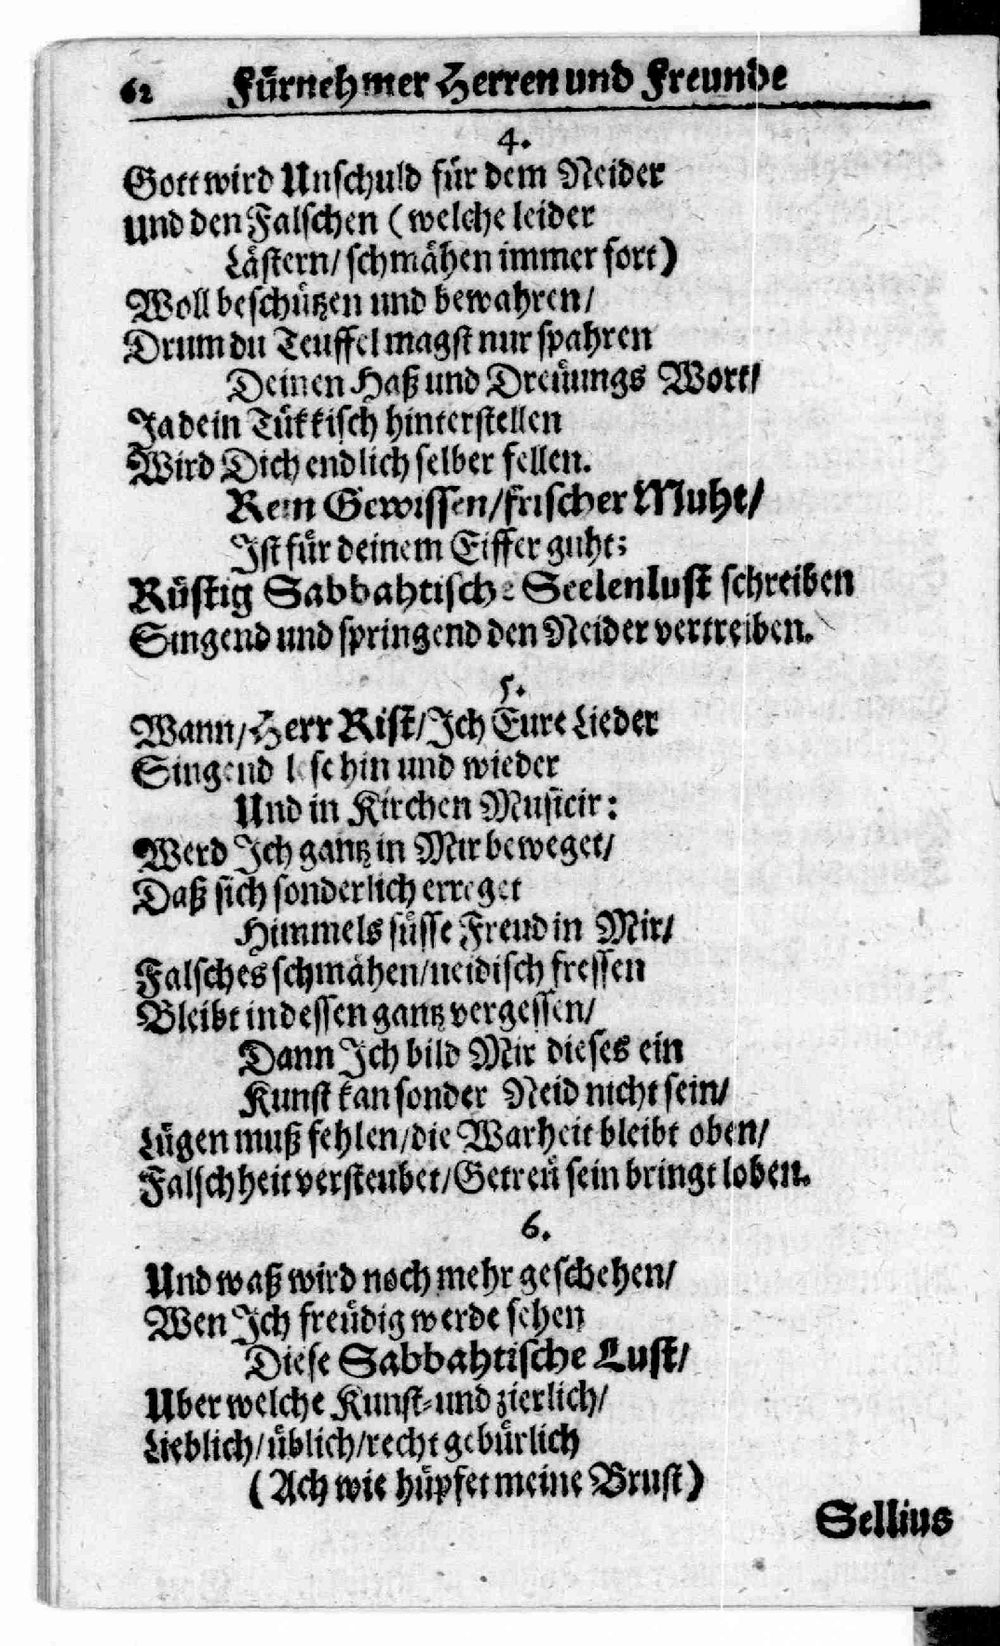 62 Fürnehmer Herren und Freunde
4.
Gott wird Unschuld für dem Neider
und den Falschen (welche leider
Lästern/ schmähen immer fort)
Woll beschützen und bewahren/
Drum du Teuffel magst nur spahren
Deinen Haß und Dreüungs Wort/
Ja dein Tükkisch hinterstellen
Wird Dich endlich selber fellen.
Rein Gewissen/frischer Muht/
Ist für deinem Eiffer guht;
Rüstig Sabbahtische Seelenlust schreiben
Singend und springend den Neider vertreiben.
5.
Wann/Herr Rist/Ich Eure Lieder
Singend lese hin und wieder
Und in Kirchen Musicir:
Werd Ich gantz in Mir beweget/
Daß sich sonderlich erreget
Himmels süsse Freud in Mir/
Falsches schmähen/neidisch fressen
Bleibt indessen gantz vergessen/
Dann Ich bild Mir dieses ein
Kunst kan sonder Neid nicht sein/
Lügen muß fehlen/die Warheit bleibt oben/
Falschheit versteubet/Getreü sein bringt loben.
6.
Und waß wird noch mehr geschehen/
Wen Ich freüdig werde sehen
Diese Sabbahtische Lust/
Uber welche Kunst-und zierlich/
Lieblich/üblich/recht gebürlich
(Ach wie hüpfet meine Brust)
Sellius